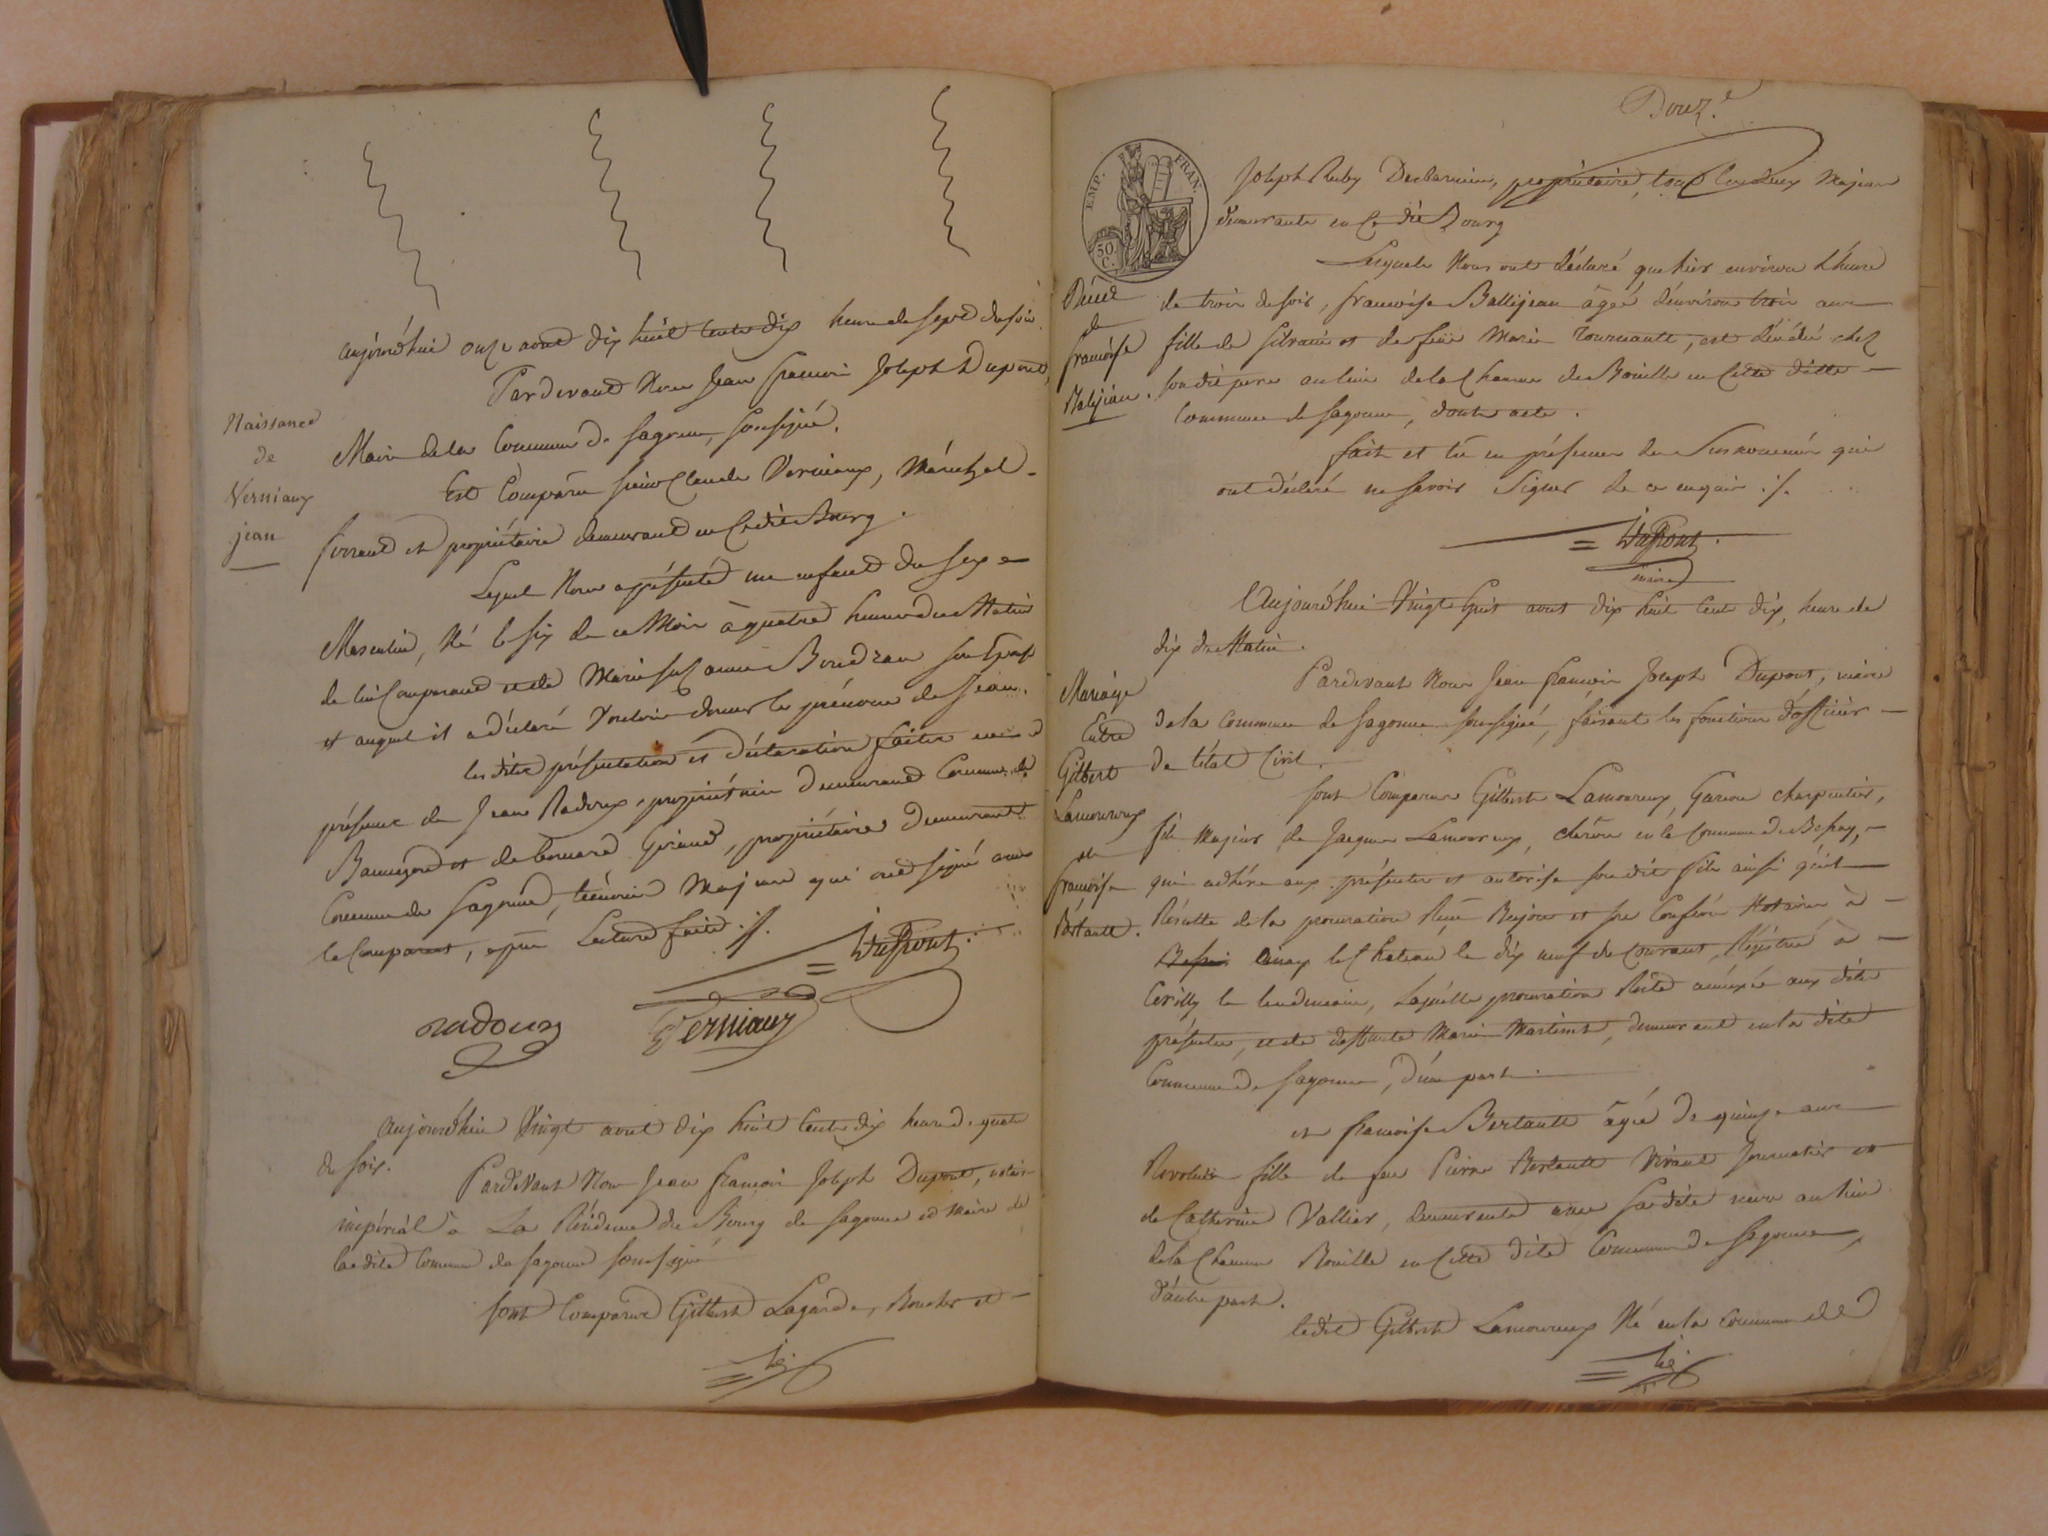 aujourd'hui onze aout dix huit cents dix heure de sept du soir
Pardevant Nous Jean françois Joseph Dupont,
Maire de la Commune de Sagonne, soussigné.
Naissance
de
Verniaux
jean
Est Comparu sieur Claude Verniaux, Maréchal-
ferrant et propriétaire demeurant en Ce dit Bourg.
Lequel Nous a présenté un enfant du Sexe
Masculin, Né le six de ce Mois à quatre heures du Matin
de lui Comparant et de Marie Susanne Boudrau son Epouse
et auquel il a déclaré Vouloir donner le prénom de Jean.
les dites présentation et déclaration faites en
présence de Jean Radoux, propriétaire demeurant Commune de
et de Giraud, propriétaire demeurant
Commune de Sagonne, témoins Majeurs qui ont signé avec
le Comparant, après Lecture faite ./.
Dupont
radoux
Verniaux
aujourd'hui Vingt aout dix huit Cents dix heure de quatre
du soir.
Pardevant Nous Jean françois Joseph Dupont, notaire
impérial à La Résidence du Bourg de Sagonne et Maire de
la dite Commune de Sagonne soussigné
sont Comparus Gilbert Lagarde, et
Douz.e
EMP. FRAN.
50 C.
Joseph Ruby propriétaire, tous les deux Majeurs
demeurants en Ce dit Bourg
Lesquels Nous ont déclaré que hier environ l'heure
Décès
de
françoise
Balijean.
de trois du soir, françoise Ballijean âgée d'environ trois ans
fille de Silvain et de feüe Marie Tournault, est décédée chez
son dit pere au lieu de la Chaume de Bouille en Cette ditte
Commune de Sagonne, dont acte.
fait et lu en présence des Susnommés qui
ont déclaré ne savoir Signer de ce enquis ./.
Dupont
maire
Aujourd'hui Vingt huit aout dix huit Cent dix, heure de
dix du Matin.
Pardevant Nous Jean françois Joseph Dupont, maire
Mariage
Entre
Gilbert
Lamoureux
et
françoise
Bertault.
de la Commune de Sagonne soussigné, faisant les fonctions d'officier
de l'état Civil.
sont Comparus Gilbert Lamoureux, Garçon charpentier,
fils Majeur de Jacques Lamoureux, en la Commune de Bessay,
qui adhére aux présentes et autorise son dit fils ainsi qu'il
Résulte de la procuration Reçue Bujon et son Confrère Notaires à
Ainay le Chateau le dix neuf du Courant, Régistrée à
Cérilly le lendemain, Laquelle procuration Reste annéxée aux dites
présentes, et de deffunte Marie Martinat, demeurant en la dite
Commune de Sagonne, d'une part.
et françoise Bertault âgée de quinze ans
Révolus fille de feu Pierre Bertault Vivant Journalier et
de Catherine Vallier, demeurante avec sa dite mere au lieu
de la Chaume Bouille en Cette dite Commune de Sagonne,
d'autre part.
ledit Gilbert Lamoureux Né en la Commune de